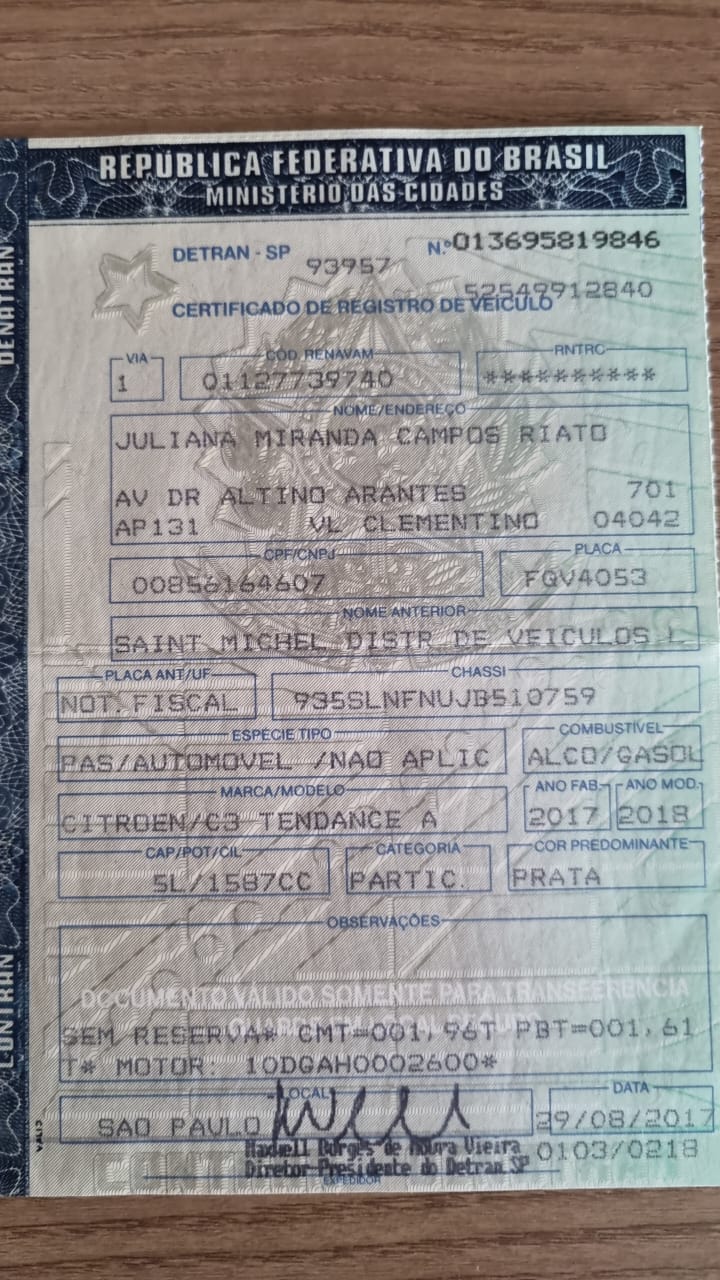 REPÚBLICA FEDERATIVA DO BRASIL
MINISTÉRIO DAS CIDADES
DENATRAN
DETRAN - SP
93957
N.º 013695819846
52549912840
CERTIFICADO DE REGISTRO DE VEÍCULO
VIA
1
CÓD. RENAVAM
01127739740
RNTRC
**********
NOME/ENDEREÇO
JULIANA MIRANDA CAMPOS RIATO
AV DR ALTINO ARANTES 701
AP131 VL CLEMENTINO 04042
CPF/CNPJ
00856164607
PLACA
FGV4053
NOME ANTERIOR
SAINT MICHEL DISTR DE VEICULOS L
PLACA ANT/UF
NOT.FISCAL
CHASSI
935SLNFNUJB510759
ESPÉCIE TIPO
PAS/AUTOMOVEL /NAO APLIC
COMBUSTÍVEL
ALCO/GASOL
MARCA/MODELO
CITROEN/C3 TENDANCE A
ANO FAB.
2017
ANO MOD.
2018
CAP/POT/CIL
5L/1587CC
CATEGORIA
PARTIC.
COR PREDOMINANTE
PRATA
OBSERVAÇÕES
DOCUMENTO VÁLIDO SOMENTE PARA TRANSFERÊNCIA
SEM RESERVA* CMT=001,96T PBT=001,61
T* MOTOR: 10DGAH0002600*
CONTRAN
LOCAL
SAO PAULO
DATA
29/08/2017
Maxwell Borges de Moura Vieira
Diretor-Presidente do Detran.SP
0103/0218
EXPEDIDOR